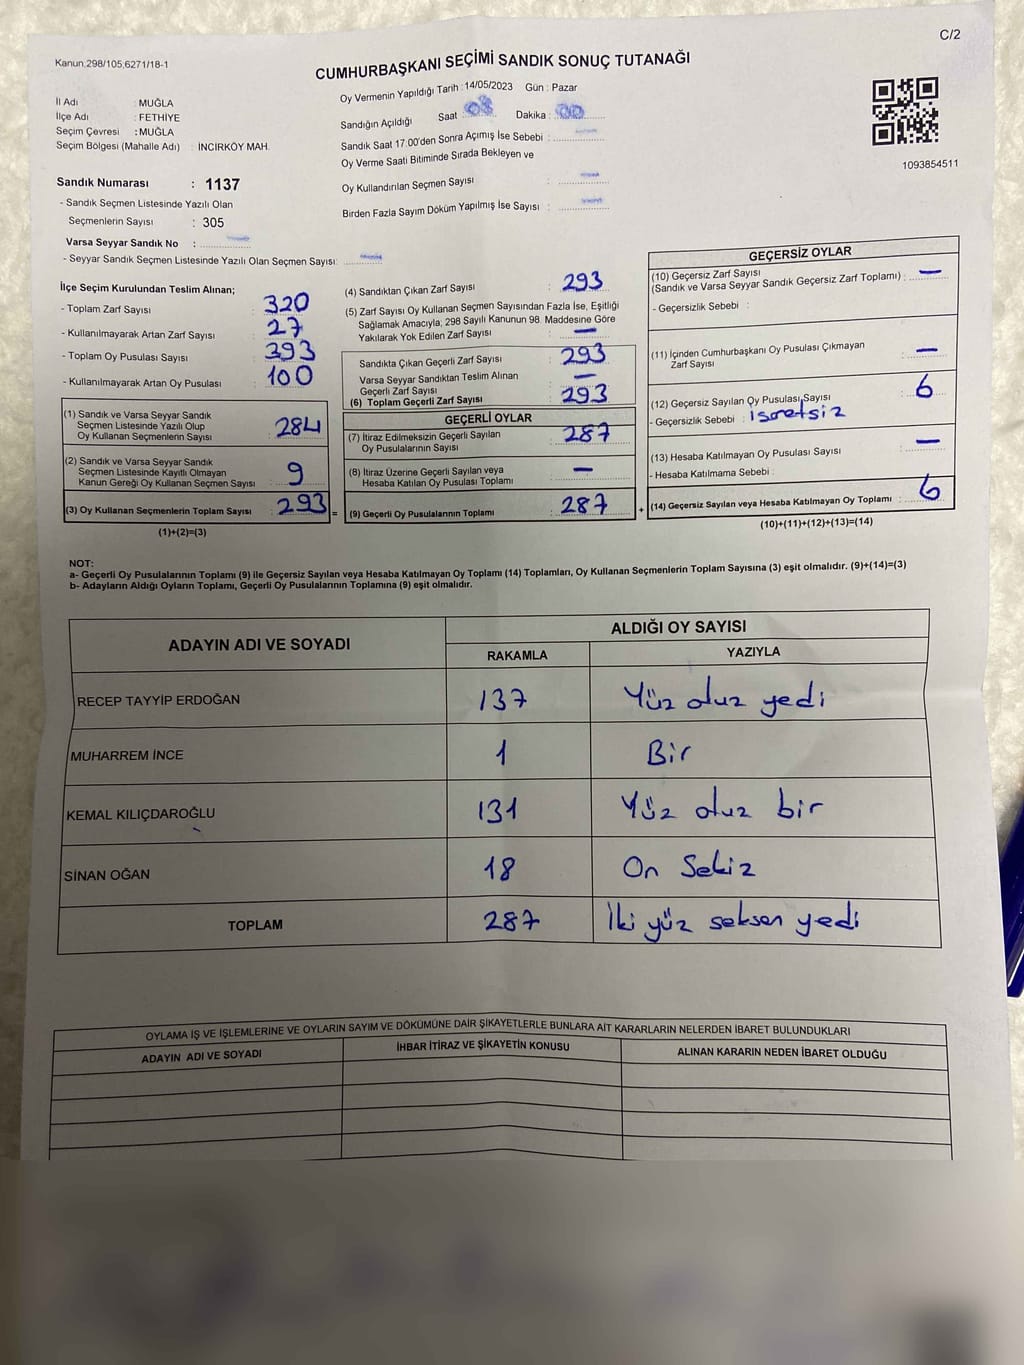 C/2
Kanun.298/105,6271/18-1
CUMHURBAŞKANI SEÇİMİ SANDIK SONUÇ TUTANAĞI
İl Adı : MUĞLA
İlçe Adı : FETHİYE
Seçim Çevresi : MUĞLA
Seçim Bölgesi (Mahalle Adı) : İNCİRKÖY MAH.
Sandık Numarası : 1137
- Sandık Seçmen Listesinde Yazılı Olan
Seçmenlerin Sayısı : 305
Varsa Seyyar Sandık No :
- Seyyar Sandık Seçmen Listesinde Yazılı Olan Seçmen Sayısı:
Oy Vermenin Yapıldığı Tarih :14/05/2023 Gün : Pazar
Sandığın Açıldığı Saat : 08 Dakika : 00
Sandık Saat 17:00'den Sonra Açımış İse Sebebi :
Oy Verme Saati Bitiminde Sırada Bekleyen ve
Oy Kullandırılan Seçmen Sayısı :
Birden Fazla Sayım Döküm Yapılmış İse Sayısı :
1093854511
İlçe Seçim Kurulundan Teslim Alınan;
- Toplam Zarf Sayısı : 320
- Kullanılmayarak Artan Zarf Sayısı : 27
- Toplam Oy Pusulası Sayısı : 393
- Kullanılmayarak Artan Oy Pusulası : 100
(1) Sandık ve Varsa Seyyar Sandık
Seçmen Listesinde Yazılı Olup
Oy Kullanan Seçmenlerin Sayısı : 284
(2) Sandık ve Varsa Seyyar Sandık
Seçmen Listesinde Kayıtlı Olmayan
Kanun Gereği Oy Kullanan Seçmen Sayısı : 9
(3) Oy Kullanan Seçmenlerin Toplam Sayısı : 293 =
(1)+(2)=(3)
(4) Sandıktan Çıkan Zarf Sayısı : 293
(5) Zarf Sayısı Oy Kullanan Seçmen Sayısından Fazla İse, Eşitliği
Sağlamak Amacıyla, 298 Sayılı Kanunun 98. Maddesine Göre
Yakılarak Yok Edilen Zarf Sayısı : —
Sandıkta Çıkan Geçerli Zarf Sayısı : 293
Varsa Seyyar Sandıktan Teslim Alınan
Geçerli Zarf Sayısı : —
(6) Toplam Geçerli Zarf Sayısı : 293
GEÇERLİ OYLAR
(7) İtiraz Edilmeksizin Geçerli Sayılan
Oy Pusulalarının Sayısı : 287
(8) İtiraz Üzerine Geçerli Sayılan veya
Hesaba Katılan Oy Pusulası Toplamı : —
(9) Geçerli Oy Pusulalarının Toplamı : 287 +
GEÇERSİZ OYLAR
(10) Geçersiz Zarf Sayısı
(Sandık ve Varsa Seyyar Sandık Geçersiz Zarf Toplamı) : —
- Geçersizlik Sebebi :
(11) İçinden Cumhurbaşkanı Oy Pusulası Çıkmayan
Zarf Sayısı : —
(12) Geçersiz Sayılan Oy Pusulası Sayısı : 6
- Geçersizlik Sebebi : isaretsiz
(13) Hesaba Katılmayan Oy Pusulası Sayısı : —
- Hesaba Katılmama Sebebi :
(14) Geçersiz Sayılan veya Hesaba Katılmayan Oy Toplamı : 6
(10)+(11)+(12)+(13)=(14)
NOT:
a- Geçerli Oy Pusulalarının Toplamı (9) ile Geçersiz Sayılan veya Hesaba Katılmayan Oy Toplamı (14) Toplamları, Oy Kullanan Seçmenlerin Toplam Sayısına (3) eşit olmalıdır. (9)+(14)=(3)
b- Adayların Aldığı Oyların Toplamı, Geçerli Oy Pusulalarının Toplamına (9) eşit olmalıdır.
ADAYIN ADI VE SOYADI ALDIĞI OY SAYISI
RAKAMLA YAZIYLA
RECEP TAYYİP ERDOĞAN 137 Yüz otuz yedi
MUHARREM İNCE 1 Bir
KEMAL KILIÇDAROĞLU 131 Yüz otuz bir
SİNAN OĞAN 18 On Sekiz
TOPLAM 287 İki yüz seksen yedi
OYLAMA İŞ VE İŞLEMLERİNE VE OYLARIN SAYIM VE DÖKÜMÜNE DAİR ŞİKAYETLERLE BUNLARA AİT KARARLARIN NELERDEN İBARET BULUNDUKLARI
ADAYIN ADI VE SOYADI İHBAR İTİRAZ VE ŞİKAYETİN KONUSU ALINAN KARARIN NEDEN İBARET OLDUĞU